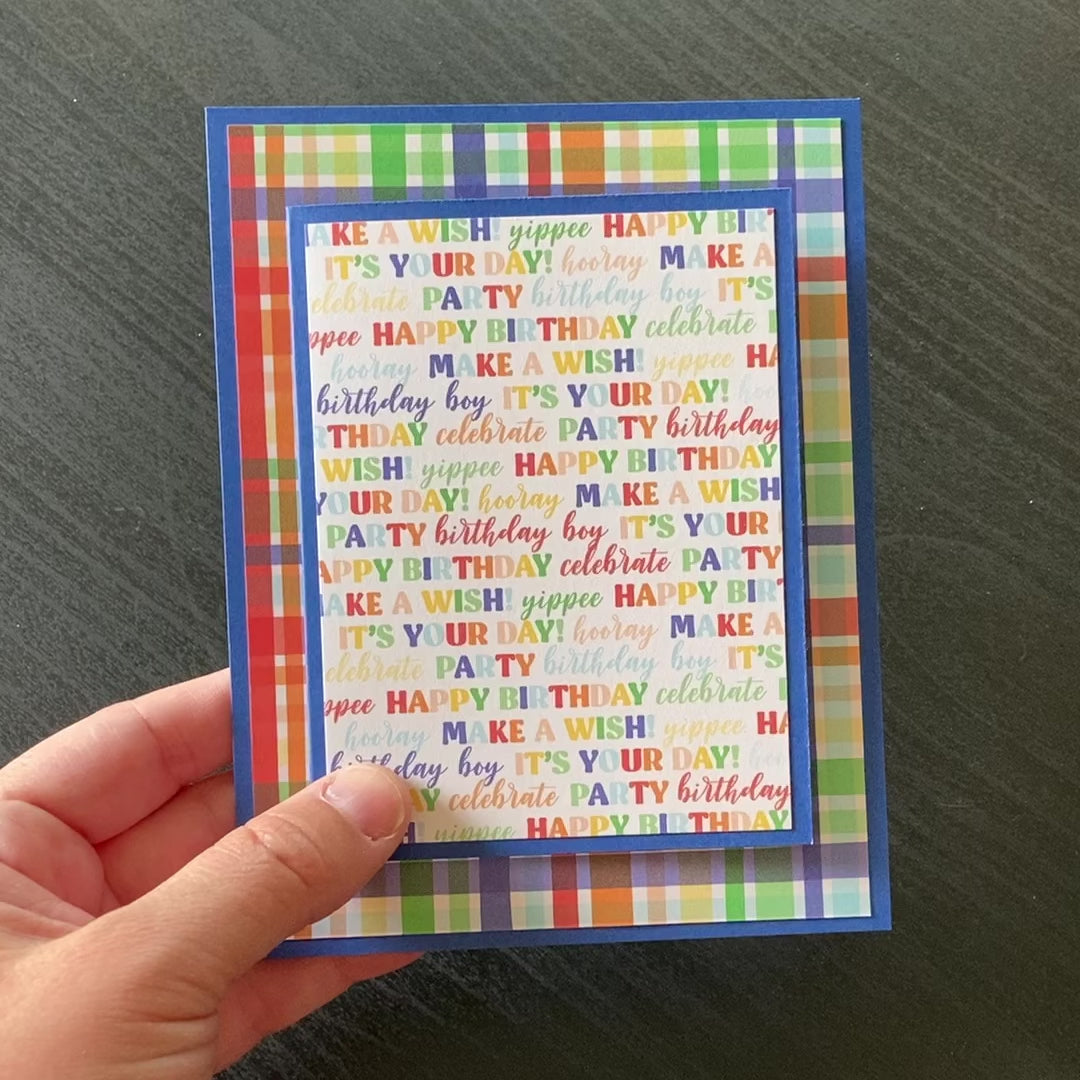 AKE A WISH! yippee HAPPY BIR
IT'S YOUR DAY! hooray MAKE A
elebrate PARTY birthday boy IT'S
ppee HAPPY BIRTHDAY celebrate
hooray MAKE A WISH! yippee HA
birthday boy IT'S YOUR DAY! hoo
RTHDAY celebrate PARTY birthday
WISH! yippee HAPPY BIRTHDAY
YOUR DAY! hooray MAKE A WISH
PARTY birthday boy IT'S YOUR
APPY BIRTHDAY celebrate PARTY
AKE A WISH! yippee HAPPY BIRT
IT'S YOUR DAY! hooray MAKE A
elebrate PARTY birthday boy IT'S
ppee HAPPY BIRTHDAY celebrate
hooray MAKE A WISH! yippee HA
birthday boy IT'S YOUR DAY! hoo
AY celebrate PARTY birthday
H! yippee HAPPY BIRTHDAY